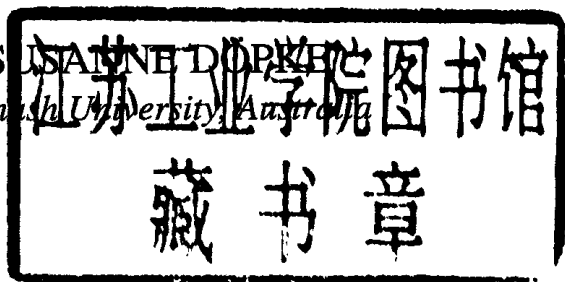 SUSANNE DOPKE
nash University, Australia
江苏工业学院图书馆
藏书章